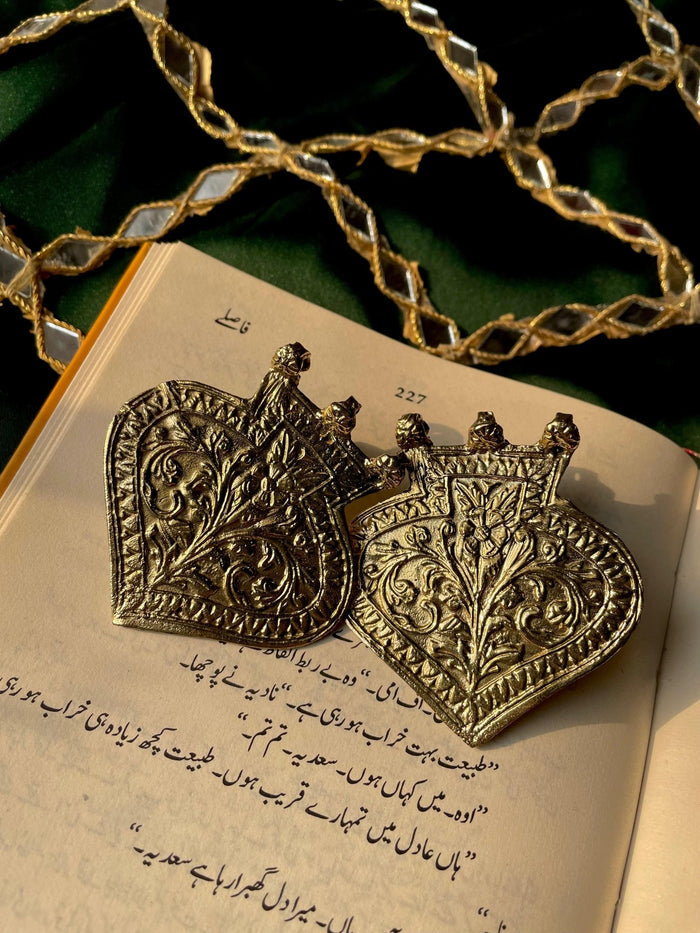 فاصلے
227
وہ بے ربط الفاظ
اف امی۔“ نادیہ نے پوچھا۔
”طبیعت بہت خراب ہو رہی ہے۔“
”اوہ۔ میں کہاں ہوں۔ سعدیہ۔ تم تم۔“
”ہاں عادل میں تمہارے قریب ہوں۔ طبیعت کچھ زیادہ ہی خراب ہو رہی
ہاں۔ میرا دل گھبرا رہا ہے سعدیہ۔“